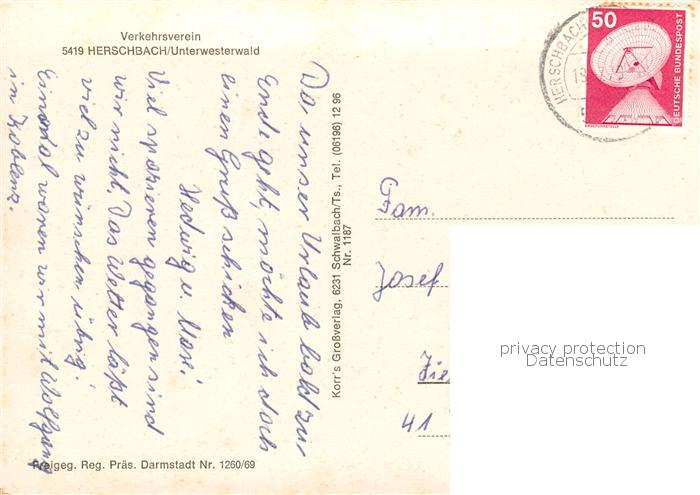 Verkehrsverein
5419 HERSCHBACH/Unterwesterwald
Da unser Urlaub bald zu
Ende geht, möchte ich doch
einen Gruß schicken
Hedwig u. Maxi
Viel spazieren gegangen sind
wir nicht. Das Wetter läßt
viel zu wünschen übrig!
Einmal waren wir mit Wolfgang
in Koblenz.
Freigeg. Reg. Präs. Darmstadt Nr. 1260/69
Korr's Großverlag, 6231 Schwalbach/Ts., Tel. (06196) 12 96
Nr. 1187
HERSCHBACH
50
DEUTSCHE BUNDESPOST
ERDEFUNKSTELLE
Fam.
Josef
41
privacy protection
Datenschutz